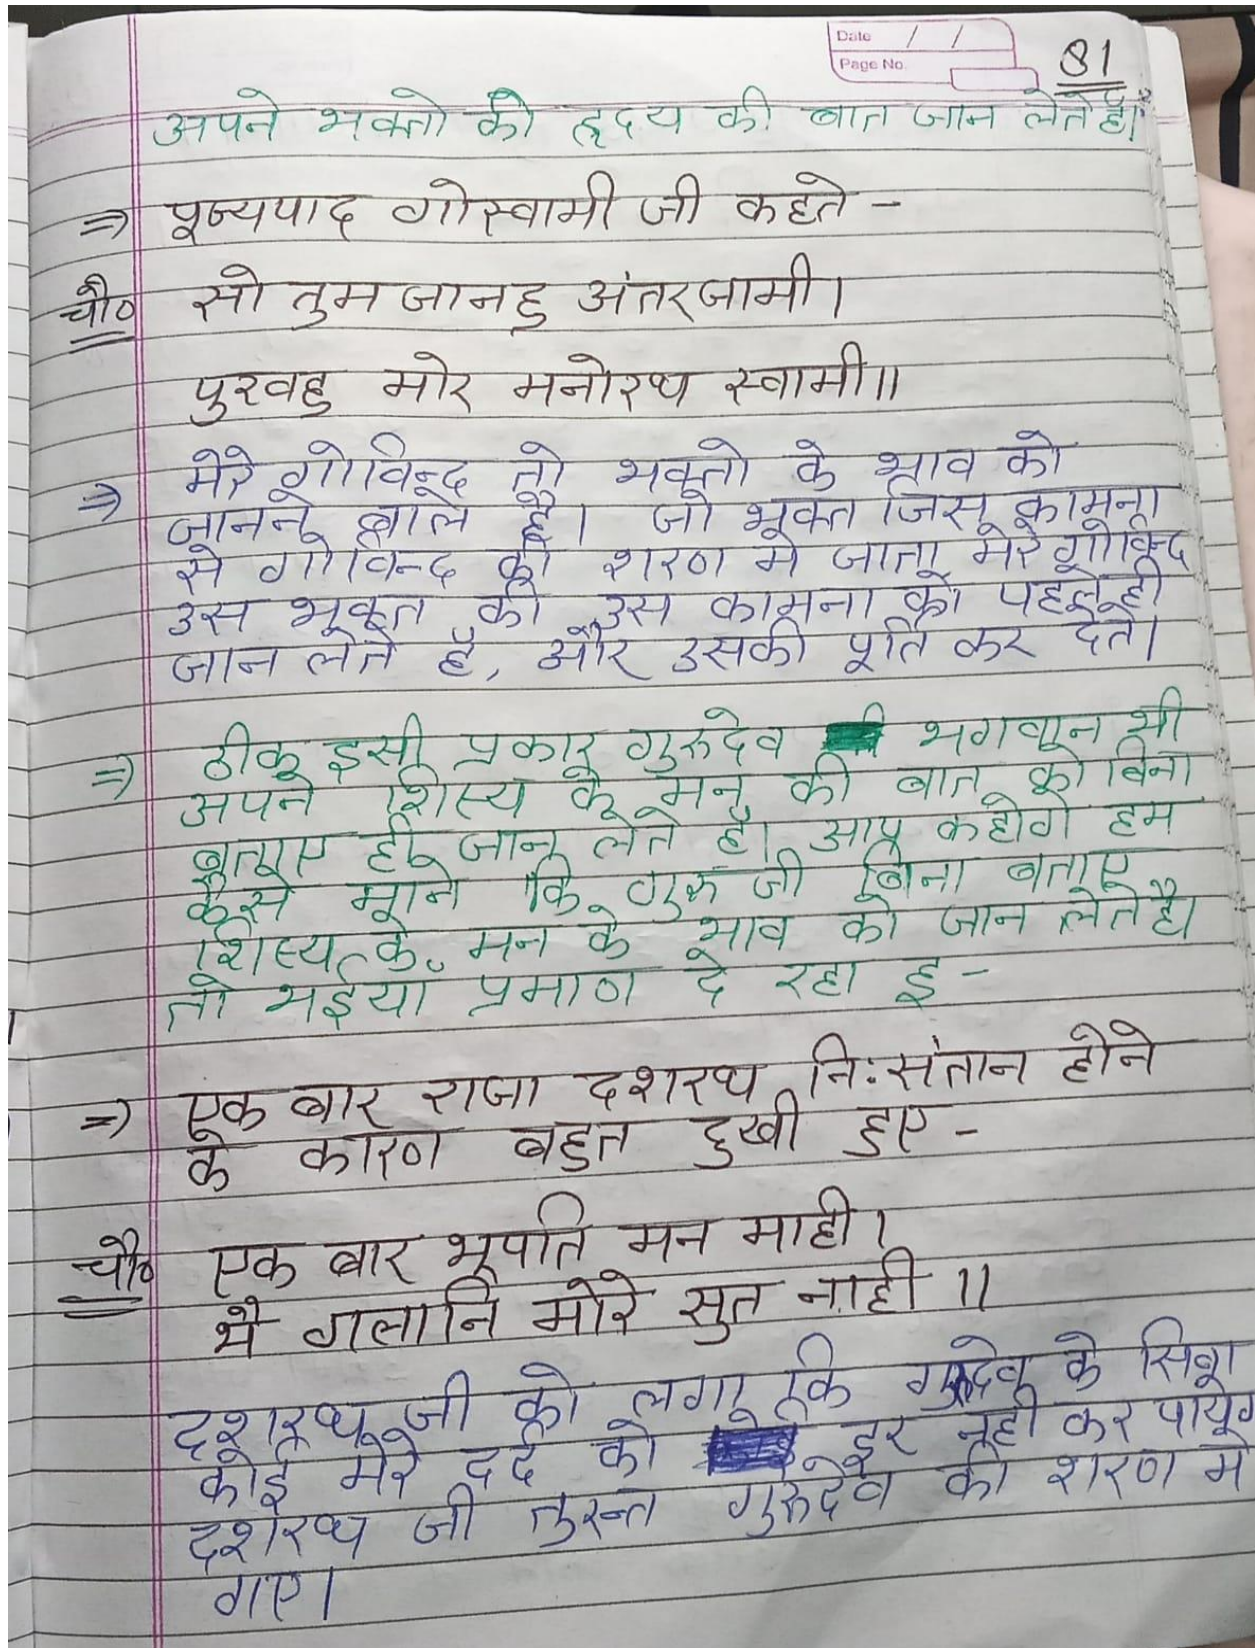 Date / /
Page No.
81
अपने भक्तो की हृदय की बात जान लेते है।
⇒ पूज्यपाद गोस्वामी जी कहते -
चौ० सो तुम जानहु अंतरजामी।
पुरवहु मोर मनोरथ स्वामी॥
⇒ मेरे गोविन्द तो भक्तो के भाव को
जानने वाले है। जो भक्त जिस कामना
से गोविन्द की शरण मे जाता मेरे गोविन्द
उस भक्त की उस कामना को पहले ही
जान लेते है, और उसकी पूर्ति कर देते।
⇒ ठीक इसी प्रकार गुरुदेव भगवान भी
अपने शिस्य के मन की बात को बिना
बताए ही जान लेते है। आप कहोगे हम
कैसे माने कि गुरु जी बिना बताए
शिस्य के मन के भाव को जान लेते है।
तो भईया प्रमाण दे रहा हु -
⇒ एक बार राजा दशरथ नि:संतान होने
के कारण बहुत दुखी हुए -
चौ० एक बार भूपति मन माही।
भै गलानि मोरे सुत नाही ॥
दशरथ जी को लगा कि गुरुदेव के सिवा
कोई मेरे दर्द को दूर नही कर पायेगे
दशरथ जी तुरन्त गुरुदेव की शरण मे
गए।